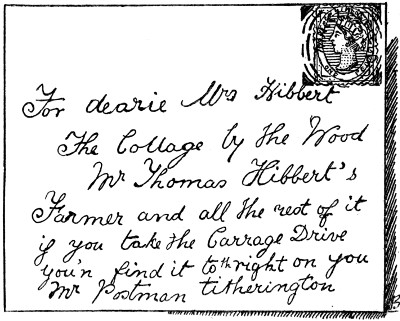 For dearie Mrs Hibbert
The Collage by the Wood
Mr Thomas Hibbert's
Farmer and all the rest of it
if you take the Carrage Drive
you'n find it to th right on you
Mr Postman titherington